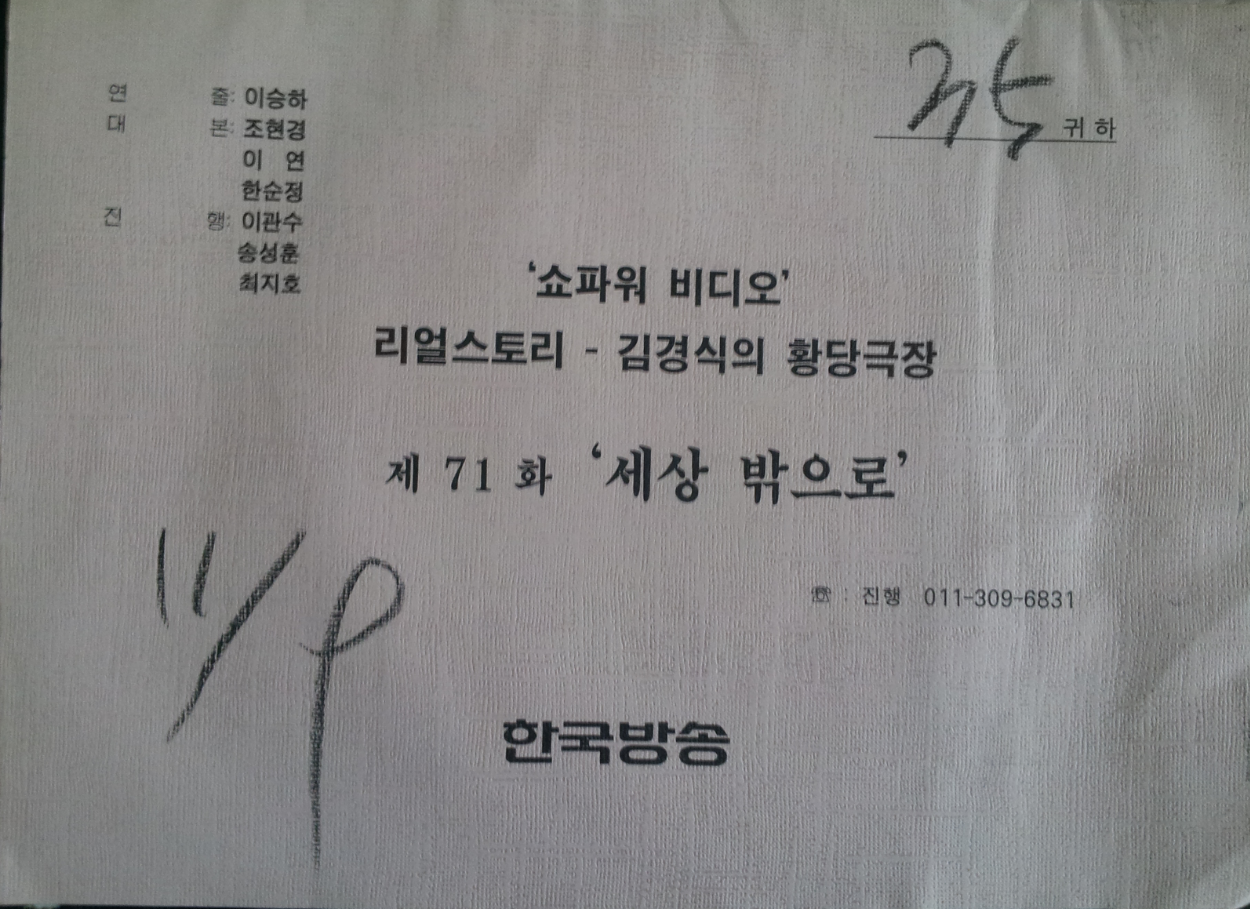 연 출: 이승하
대 본: 조현경
이 연
한순정
진 행: 이관수
송성훈
최지호
귀 하
‘쇼파워 비디오’
리얼스토리 - 김경식의 황당극장
제 71 화 ‘세상 밖으로’
☎ : 진행 011-309-6831
11/9
한국방송